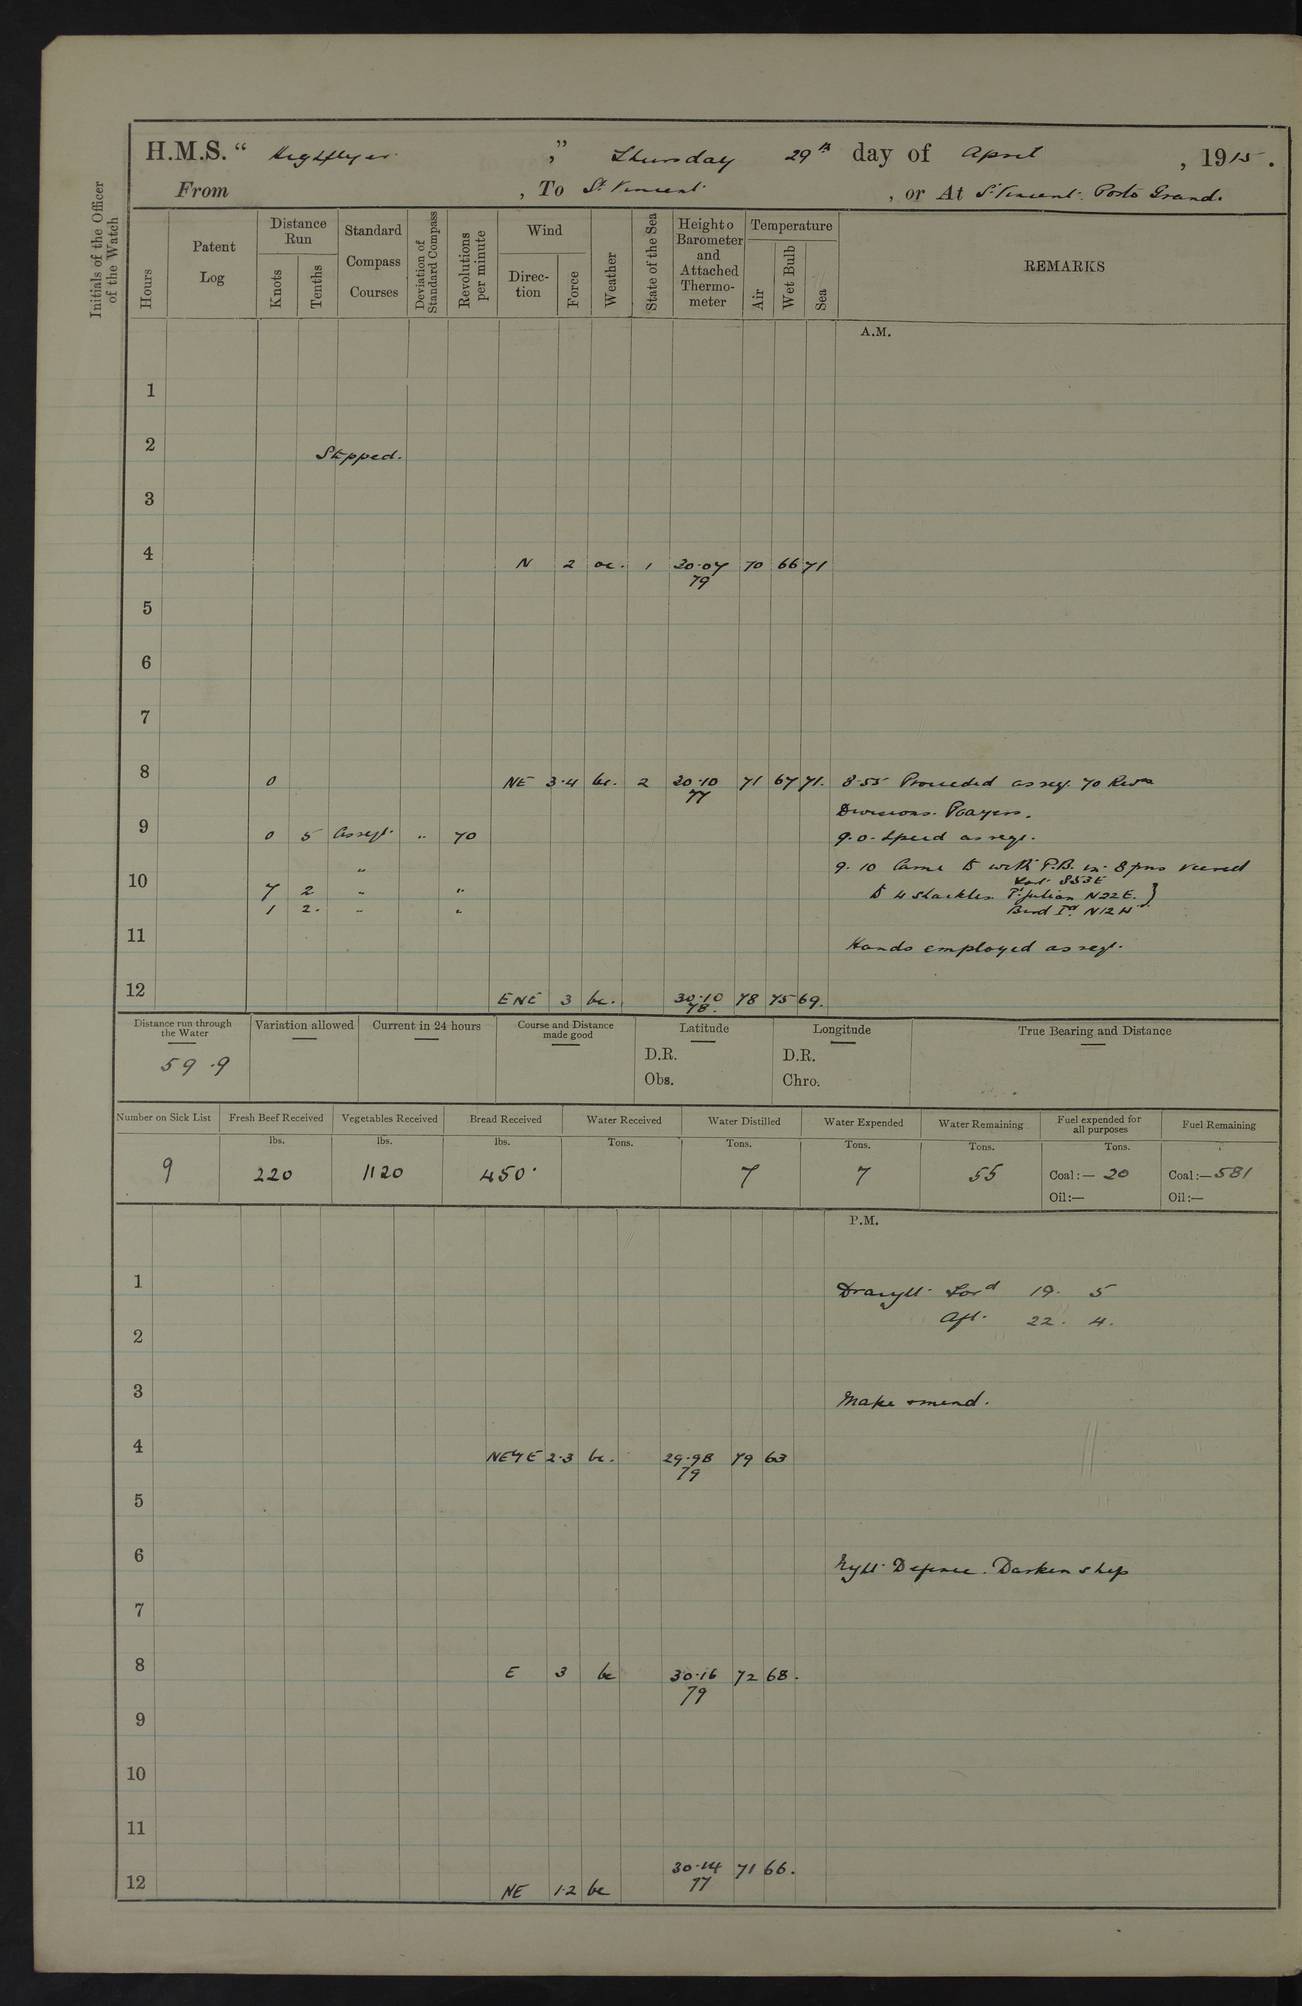 H.M.S. " Highflyer ," Thursday 29th day of April , 1915.
From , To St Vincent , or At St Vincent. Porto Grand.
Initials of the Officer of the Watch
Hours
Patent Log
Distance Run
Knots
Tenths
Standard Compass Courses
Deviation of Standard Compass
Revolutions per minute
Wind
Direction
Force
Weather
State of the Sea
Height o Barometer and Attached Thermometer
Temperature
Air
Wet Bulb
Sea
REMARKS
A.M.
1
2 Stopped.
3
4 N 2 oc. 1 30.07 70 66 71
79
5
6
7
8 0 NE 3.4 bc. 2 30.10 71 67 71. 8.55 Proceeded as req. 70 Revns
77
Divisions. Prayers.
9 0 5 As reqt. " 70 9.0. Speed as reqt.
" 9.10 Came to with P.B. in 8 fms veered
10 7 2 " " to 4 shackles S53E
Pt Julian N22E.
1 2. " " Bird Id N12W
11 Hands employed as reqt.
12 ENE 3 bc. 30.10 78 75 69.
78.
Distance run through the Water
Variation allowed
Current in 24 hours
Course and Distance made good
Latitude
Longitude
True Bearing and Distance
59.9
D.R. D.R.
Obs. Chro.
Number on Sick List
Fresh Beef Received
Vegetables Received
Bread Received
Water Received
Water Distilled
Water Expended
Water Remaining
Fuel expended for all purposes
Fuel Remaining
lbs. lbs. lbs. Tons. Tons. Tons. Tons. Tons.
9 220 1120 450 7 7 55 Coal:— 20 Coal:—581
Oil:— Oil:—
P.M.
1 Draught. Ford 19. 5
Aft. 22. 4.
2
3 Make & mend.
4 NE¾E 2.3 bc. 29.98 79 63
79
5
6 Night Defence. Darken ship
7
8 E 3 bc 30.16 72 68.
79
9
10
11
30.14 71 66.
12 NE 1.2 bc 77